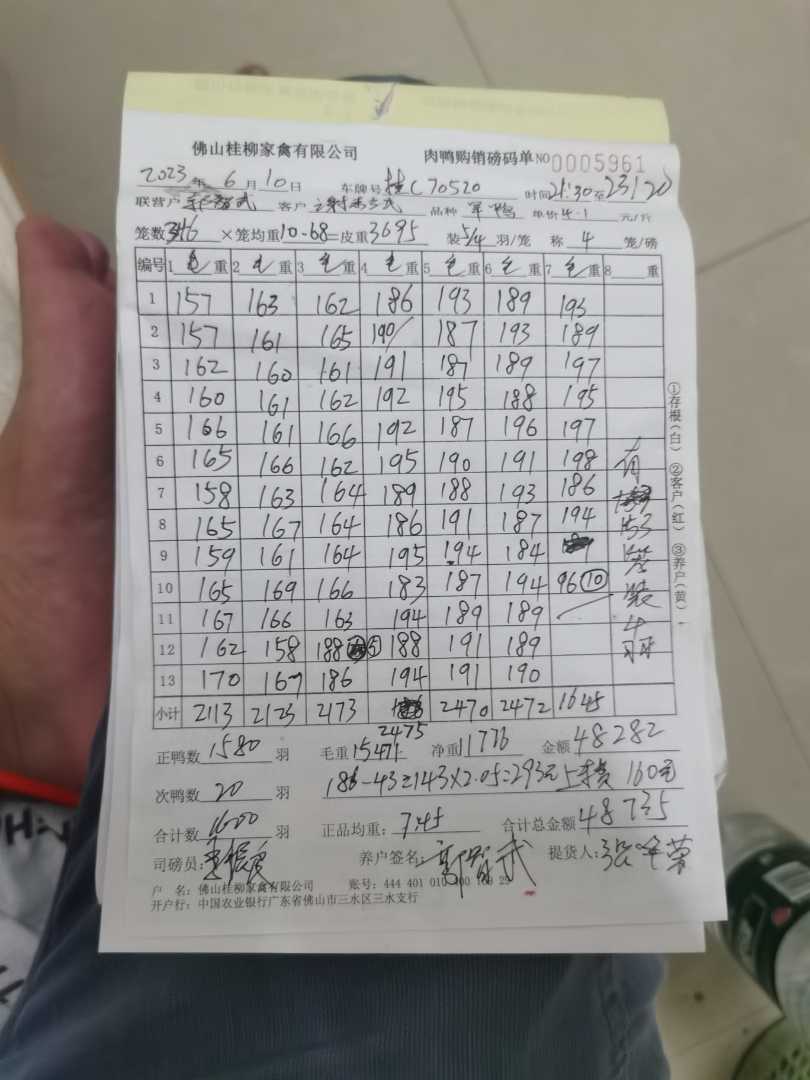 佛山桂柳家禽有限公司 肉鸭购销磅码单 NO 0005961
2023年 6月 10日 车牌号 桂C70520 时间 21:30至23:20
联营户 客户 品种 单价 4.1 元/斤
笼数 346 ×笼均重 10.68=皮重 3695 装 5/4 羽/笼 称 4 笼/磅
编号 1 毛重 2 毛重 3 毛重 4 毛重 5 毛重 6 毛重 7 毛重 8 重
1 157 163 162 186 193 189 193
2 157 161 165 190 187 193 189
3 162 160 161 191 187 189 197
4 160 161 162 192 195 188 195
5 166 161 166 192 187 196 197
6 165 166 162 195 190 191 198
7 158 163 164 189 188 193 186
8 165 167 164 186 191 187 194
9 159 161 164 195 194 184
10 165 169 166 183 187 194 96⑩
11 167 166 163 194 189 189
12 162 158 188 ⑤ 188 191 189
13 170 167 186 194 191 190
小计 2113 2123 2173 2470 2472 1645
2475
有
装
4
正鸭数 1580 羽 毛重 15471 净重 11776 金额 48282
次鸭数 20 羽 186-43=143×2.05=293元 160元
合计数 1600 羽 正品均重: 7.45 合计总金额 48735
司磅员: 养户签名: 提货人:
户 名: 佛山桂柳家禽有限公司 账号: 444 401 010
开户行: 中国农业银行广东省佛山市三水区三水支行
①存根(白) ②客户(红) ③养户(黄)